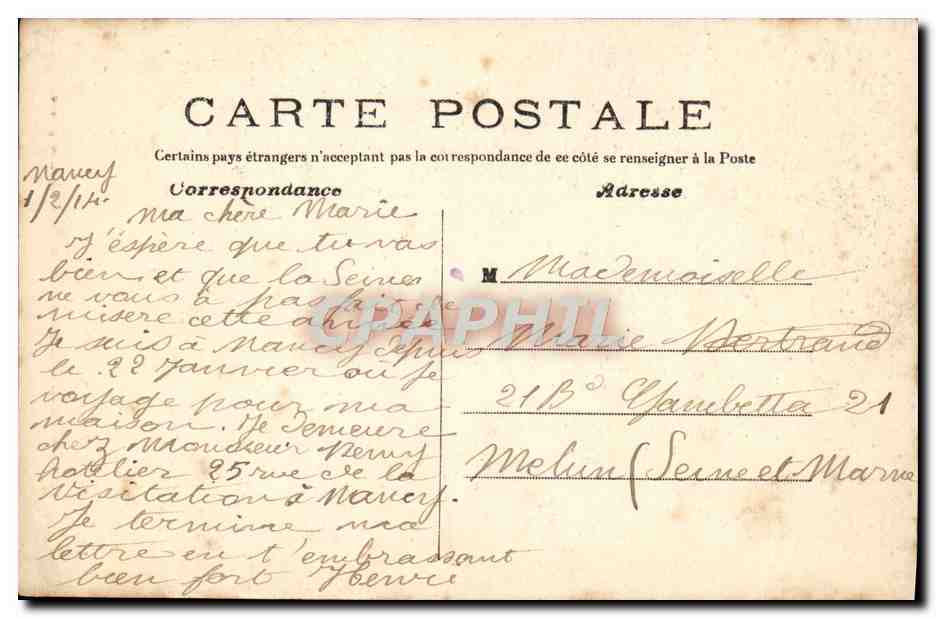 CARTE POSTALE
Certains pays étrangers n'acceptent pas la correspondance de ce côté se renseigner à la Poste
Correspondance
Adresse
Nancy
1/2/14.
Ma chère Marie
J'éspère que tu vas
bien et que la Seines
ne vous à pas fait de
misere cette année
Je suis à Nancy depuis
le 22 Janvier ou je
voyage pour ma
maison. Je demeure
chez Monsieur Remy
hotelier 25 rue de la
Visitation à Nancy.
Je termine ma
lettre en t'embrassant
bien fort Henri
M Mademoiselle
Marie Bertrand
21 Bd Gambetta 21
Melun (Seine et Marne
CPAPHIL